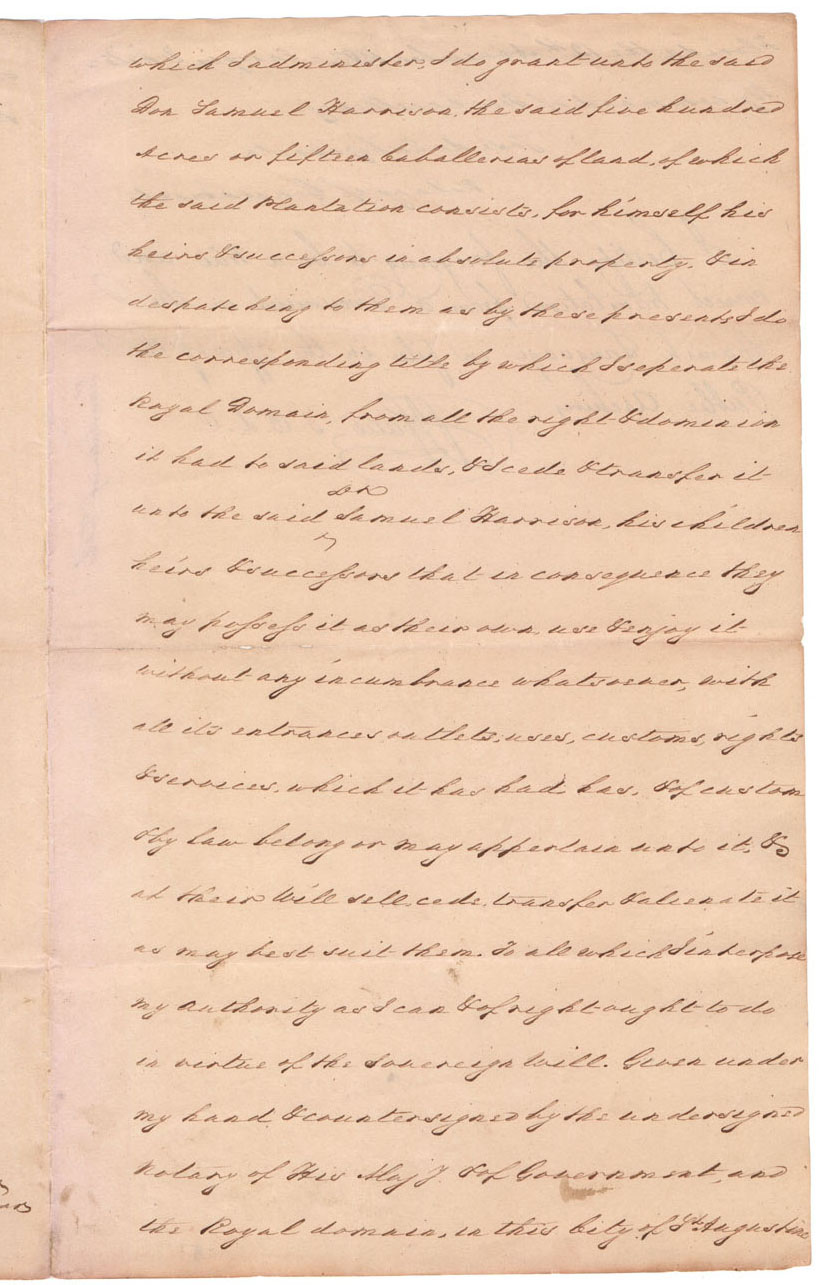 which I administer, I do grant unto the said
Don Samuel Harrison, the said five hundred
Acres or fifteen Caballerias of land, of which
the said Plantation consists, for himself his
heirs & successors in absolute property, & in
despatching to them as by these presents I do
the corresponding title by which I seperate the
Royal Domain, from all the right & dominion
it had to said lands, & I cede & transfer it
Dn
unto the said Samuel Harrison, his children
heirs & successors that in consequence they
may possess it as their own, use & enjoy it
without any incumbrance whatsoever, with
all its entrances, outlets, uses, customs, rights
& services, which it has had, has, & of custom
& by law belong or may appertain unto it, &
at their Will sell, cede, transfer & alienate it
as may best suit them. To all which I interpose
my authority as I can & of right ought to do
in virtue of the Sovereign Will. Given under
my hand & countersigned by the undersigned
Notary of His Maj y. & of Government, and
the Royal domain, in this City of St. Augustine